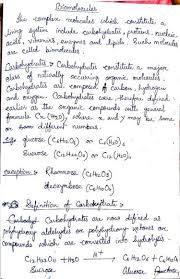 Biomolecules
The complex molecules which constitute a
living system include carbohydrates, protein, nucleic
acids, vitamins, enzymes and lipids. Such molecules
are called biomolecules.
Carbohydrates :- Carbohydrates constitute a major
class of naturally occuring organic molecules.
Carbohydrates are composed of carbon, hydrogen
and oxygen. Carbohydrates were therefore defined
earlier as the organic compounds with general
formula Cx(H2O)y, where x and y may be same
or from different numbers.
Eg:- glucose (C6H12O6) or C6(H2O)6
Sucrose (C12H22O11) or C12(H2O)11
exception:- Rhamnose (C6H12O5)
deoxyribose (C5H10O4)
Definition of Carbohydrate :-
Carbohydrates are now defined as
polyhydroxy aldehydes or polyhydroxy ketones or
compounds which are converted into hydrolysis.
C12H22O11 + H2O H+ C6H12O6 + C6H12O6
Sucrose